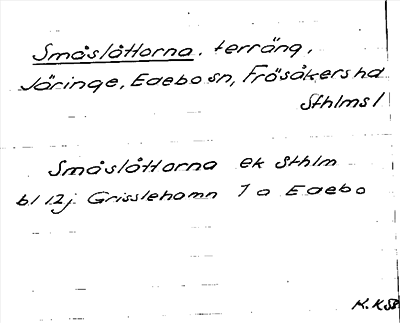 Småslåttorna. terräng,
Järinge, Edebo sn, Frösåkers hd
Sthlms l
Småslåttorna ek Sthlm
bl 12j. Grisslehamn 1 a Edebo